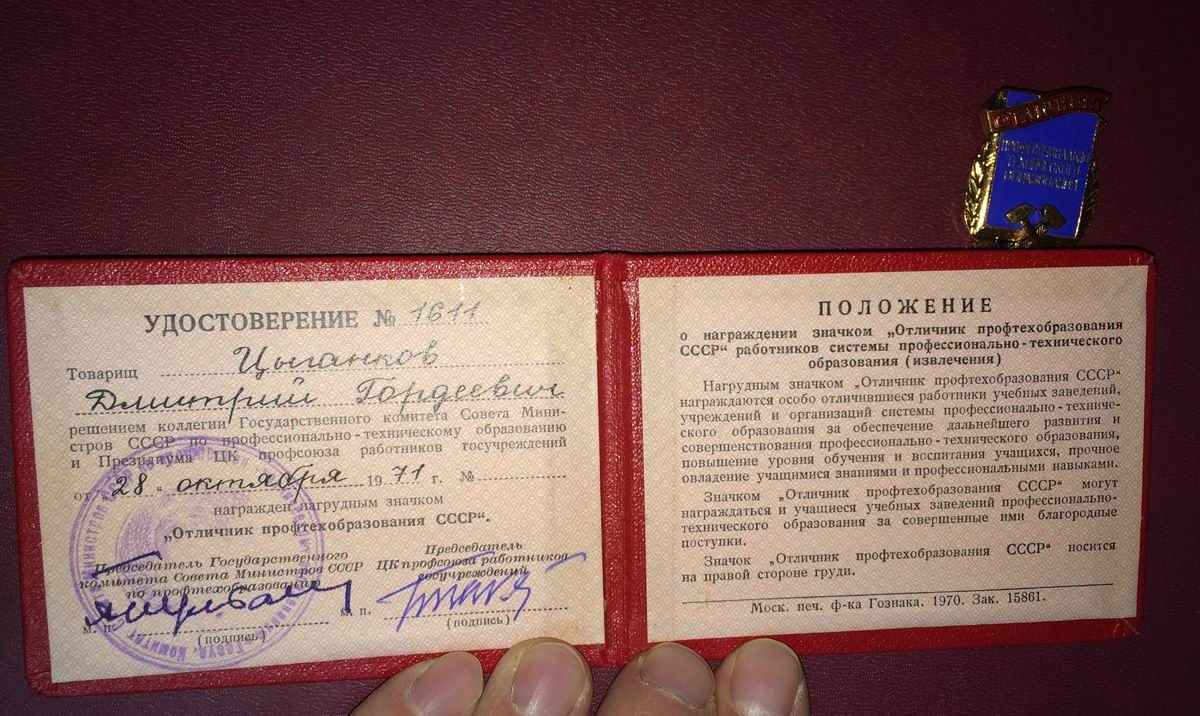 ОТЛИЧНИК
ПРОФЕССИОНАЛЬНО
ТЕХНИЧЕСКОГО
ОБРАЗОВАНИЯ
УДОСТОВЕРЕНИЕ № 1611
Товарищ Цыганков
Дмитрий Гордеевич
решением коллегии Государственного комитета Совета Мини-
стров СССР по профессионально-техническому образованию
и Президиума ЦК профсоюза работников госучреждений
от „28“ октября 1971 г. №
награжден нагрудным значком
„Отличник профтехобразования СССР“.
Председатель Государственного
комитета Совета Министров СССР
по профтехобразованию
М. П.
(подпись)
Председатель
ЦК профсоюза работников
госучреждений
М. П.
(подпись)
ПОЛОЖЕНИЕ
о награждении значком „Отличник профтехобразования
СССР“ работников системы профессионально-технического
образования (извлечения)
Нагрудным значком „Отличник профтехобразования СССР“
награждаются особо отличившиеся работники учебных заведений,
учреждений и организаций системы профессионально-техниче-
ского образования за обеспечение дальнейшего развития и
совершенствования профессионально-технического образования,
повышение уровня обучения и воспитания учащихся, прочное
овладение учащимися знаниями и профессиональными навыками.
Значком „Отличник профтехобразования СССР“ могут
награждаться и учащиеся учебных заведений профессионально-
технического образования за совершенные ими благородные
поступки.
Значок „Отличник профтехобразования СССР“ носится
на правой стороне груди.
Моск. печ. ф-ка Гознака. 1970. Зак. 15861.